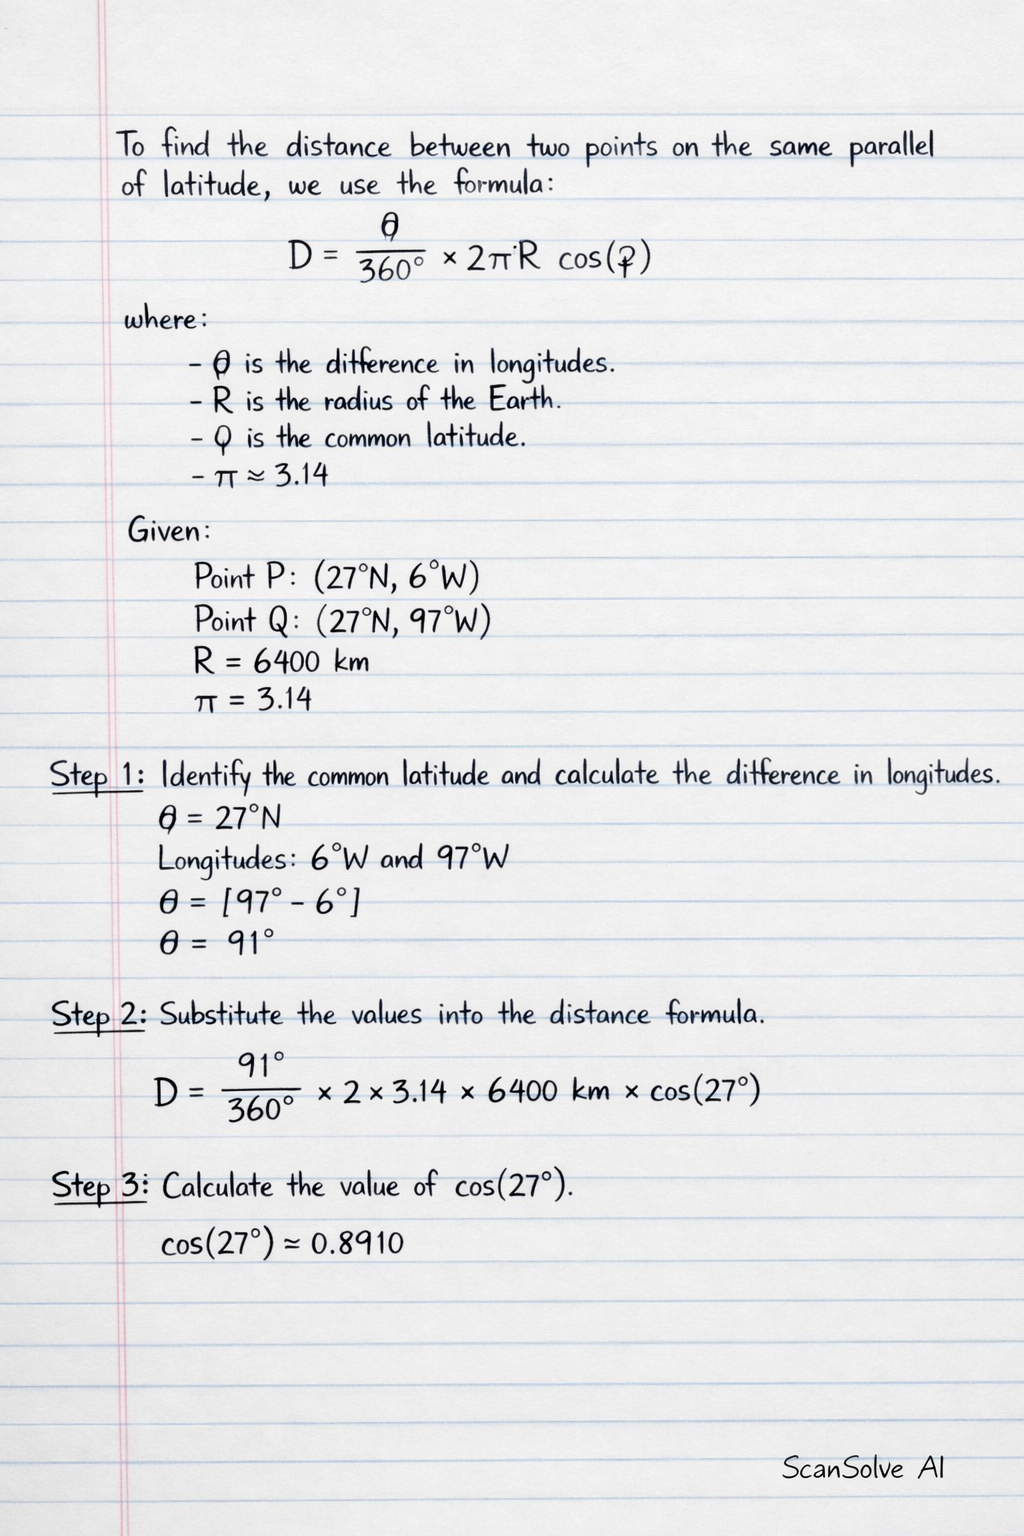 To find the distance between two points on the same parallel
of latitude, we use the formula:
D = θ/360° × 2πR cos(φ)
where:
- θ is the difference in longitudes.
- R is the radius of the Earth.
- φ is the common latitude.
- π ≈ 3.14
Given:
Point P: (27°N, 6°W)
Point Q: (27°N, 97°W)
R = 6400 km
π = 3.14
Step 1: Identify the common latitude and calculate the difference in longitudes.
θ = 27°N
Longitudes: 6°W and 97°W
θ = [97° - 6°]
θ = 91°
Step 2: Substitute the values into the distance formula.
D = 91°/360° × 2 × 3.14 × 6400 km × cos(27°)
Step 3: Calculate the value of cos(27°).
cos(27°) ≈ 0.8910
ScanSolve AI